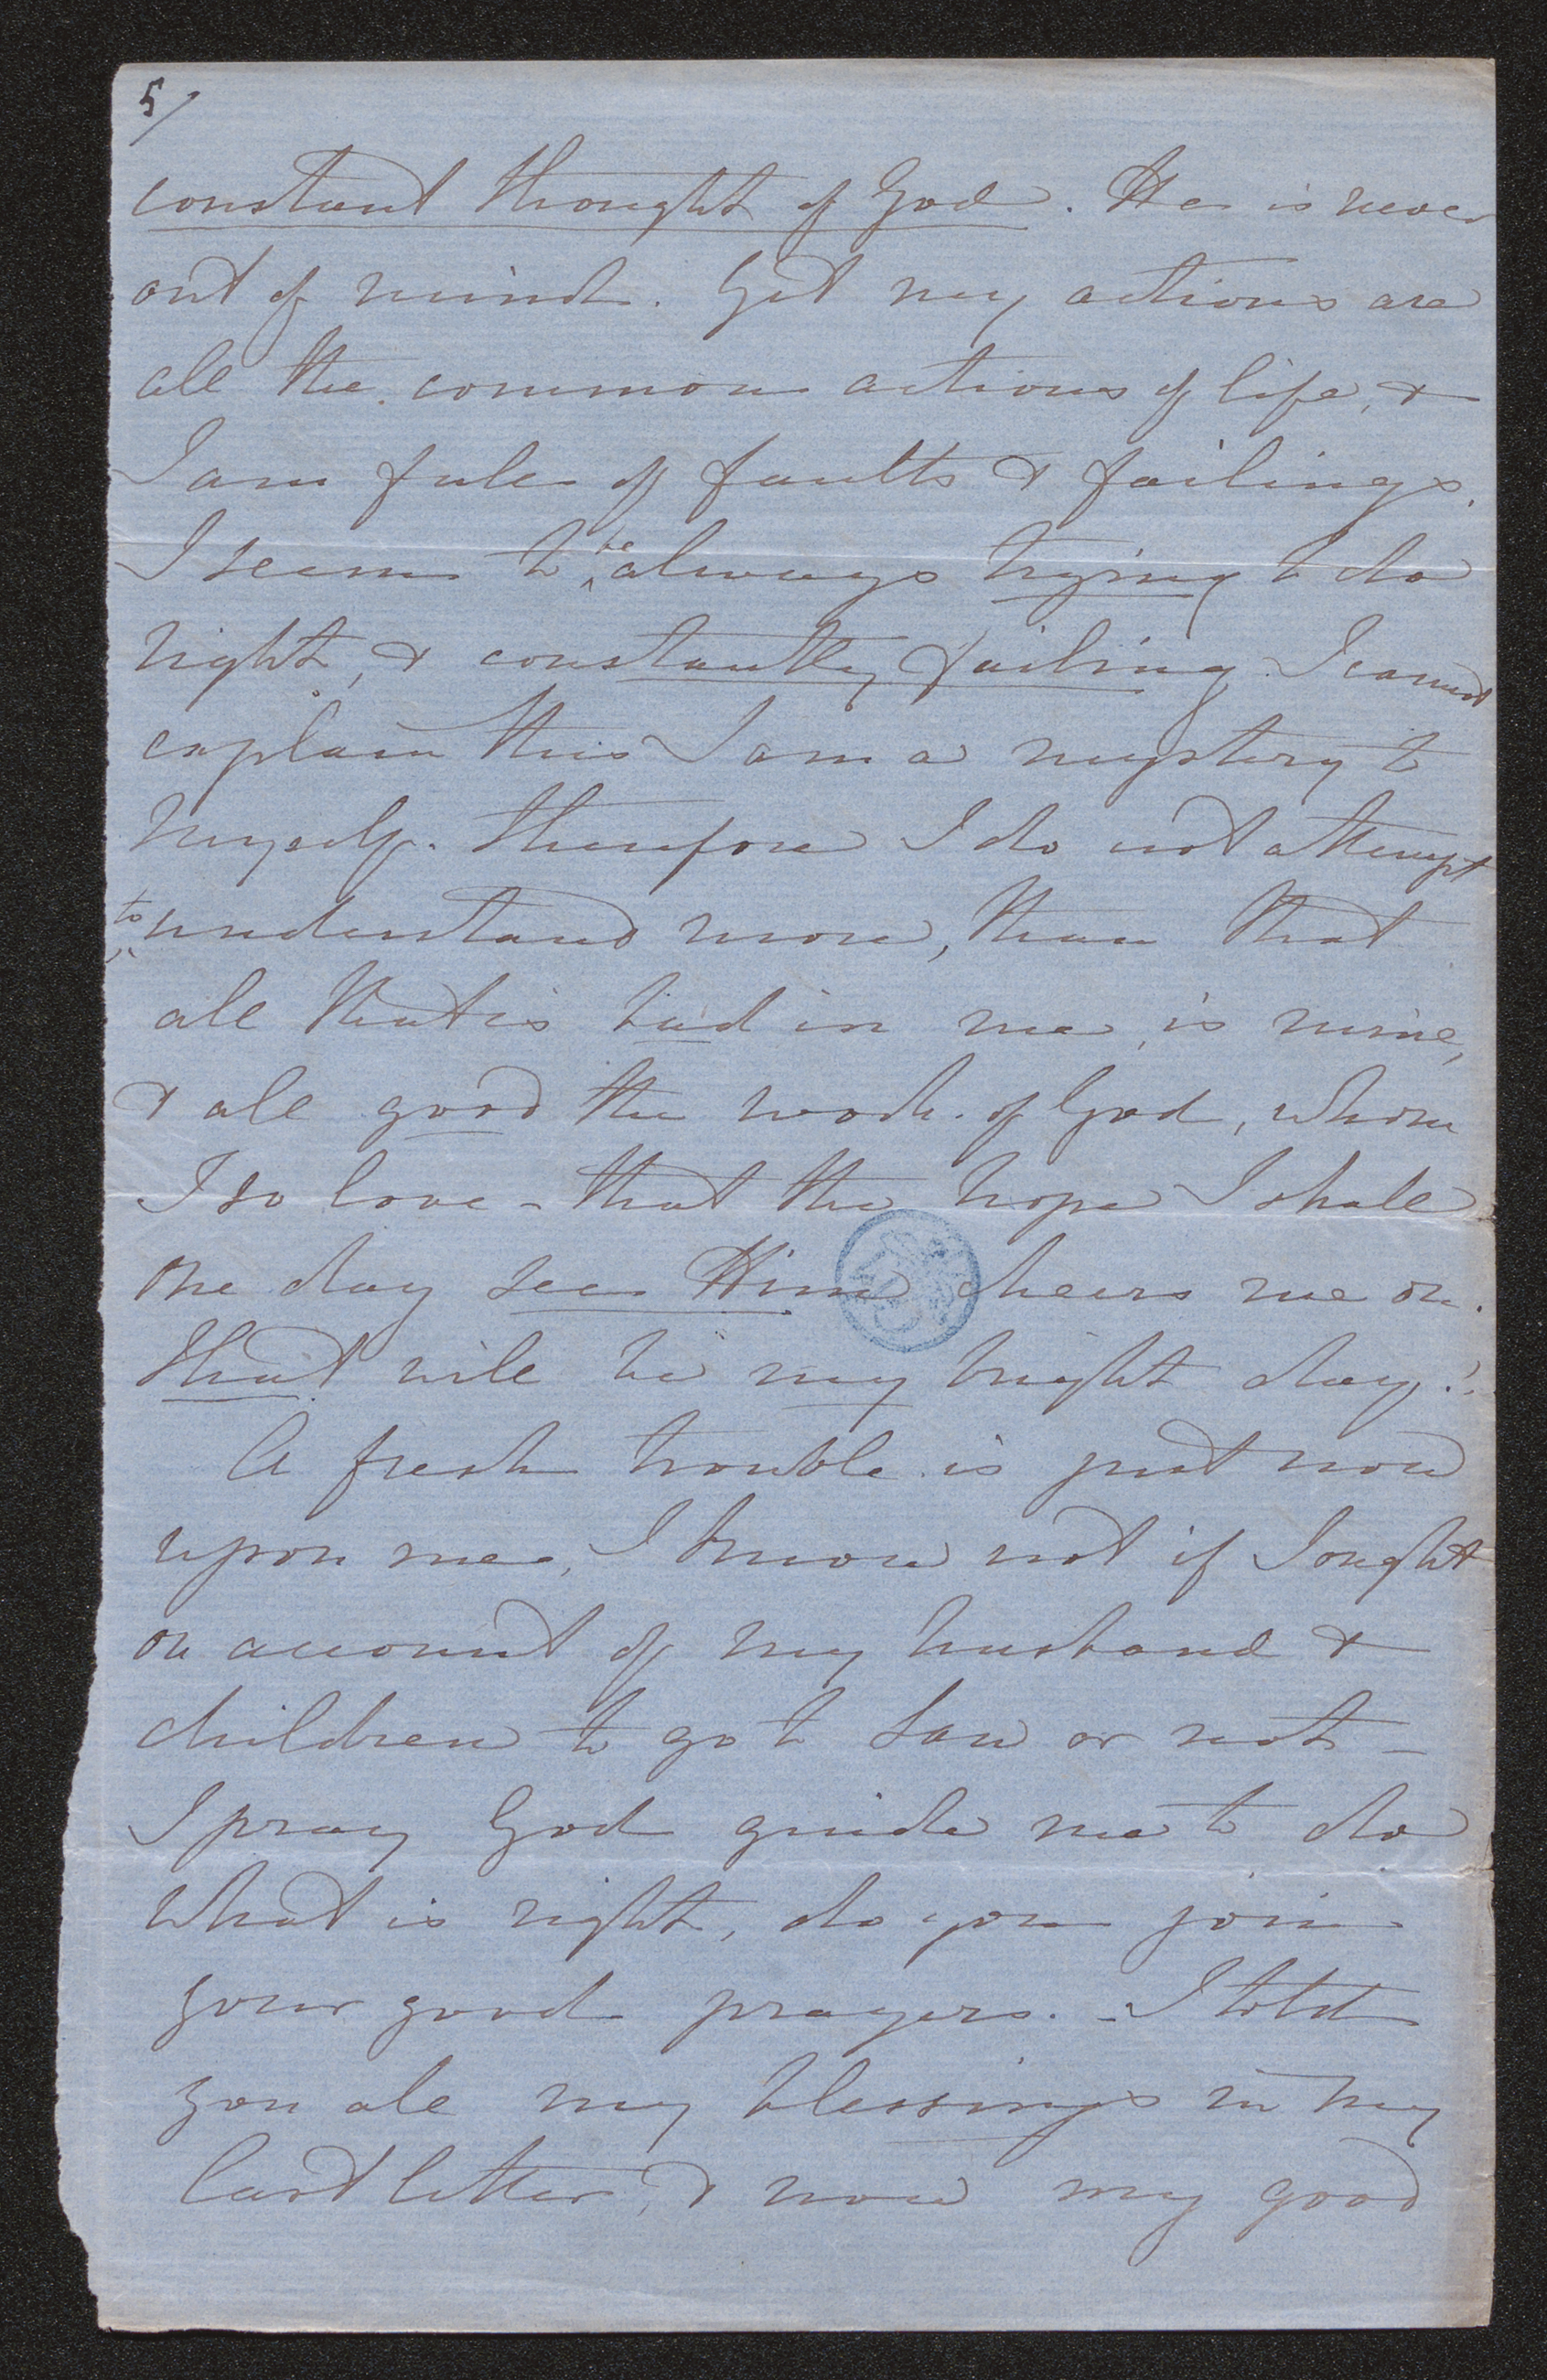 5/
constant thought of God. He is never
out of mind. Yet my actions are
all the common actions of life, &
I am full of faults & failings.
I seem to be always trying to do
right, & constantly failing. I cannot
explain this I am a mystery to
myself. therefore I do not attempt
to understand more, than that
all that is bad in me, is mine,
& all good the work of God, whom
I so love - that the hope I shall
one day see Him cheers me on.
That will be my bright day!
A fresh trouble is just now
upon me, I know not if I ought
on account of my husband &
children to go to Law or not -
I pray God guide me to do
what is right, do you join
your good prayers. - I told
you all my blessings in my
last letter, & now my good